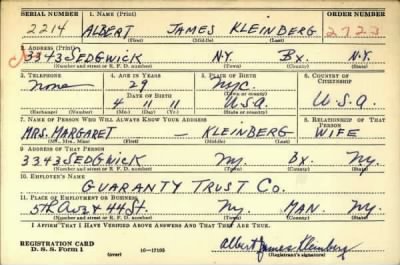 SERIAL NUMBER 1. NAME (Print) ORDER NUMBER
2214 ALBERT JAMES KLEINBERG 2723
(First) (Middle) (Last)
2. ADDRESS (Print)
3343 SEDGWICK N.Y. Bx. N.Y.
(Number and street or R. F. D. number) (Town) (County) (State)
3. TELEPHONE 4. AGE IN YEARS 5. PLACE OF BIRTH 6. COUNTRY OF CITIZENSHIP
none 29 NYC.
DATE OF BIRTH (Town or county)
4 11 11 U.S.A. U.S.A.
(Exchange) (Number) (Mo.) (Day) (Yr.) (State or country)
7. NAME OF PERSON WHO WILL ALWAYS KNOW YOUR ADDRESS 8. RELATIONSHIP OF THAT PERSON
MRS. MARGARET — KLEINBERG WIFE
(Mr., Mrs., Miss) (First) (Middle) (Last)
9. ADDRESS OF THAT PERSON
3343 SEDGWICK Ny. Bx. Ny.
(Number and street or R. F. D. number) (Town) (County) (State)
10. EMPLOYER'S NAME
GUARANTY TRUST Co.
11. PLACE OF EMPLOYMENT OR BUSINESS
5th Ave & 44 St. Ny. MAN. Ny.
(Number and street or R. F. D. number) (Town) (County) (State)
I AFFIRM THAT I HAVE VERIFIED ABOVE ANSWERS AND THAT THEY ARE TRUE.
REGISTRATION CARD
D. S. S. Form 1 (over) 16—17105 Albert James Kleinberg
(Registrant's signature)